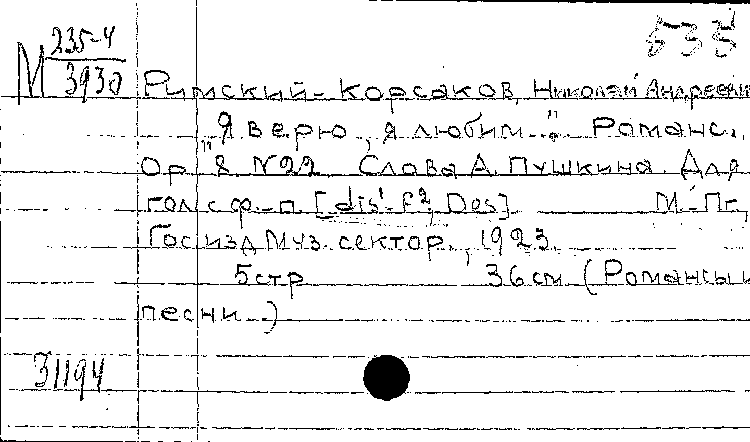 535
М 235-4
3930
Римский-Корсаков, Николай Андреевич
„Я верю, я любим...". Романс.
Ор 8 N22 Слова А. Пушкина. Для
гол. с ф.-п. [dis¹-f², Des] М.-Пг,
Госизд Муз. сектор., 1923.
5 стр 36 см. (Романсы и
песни.)
31194